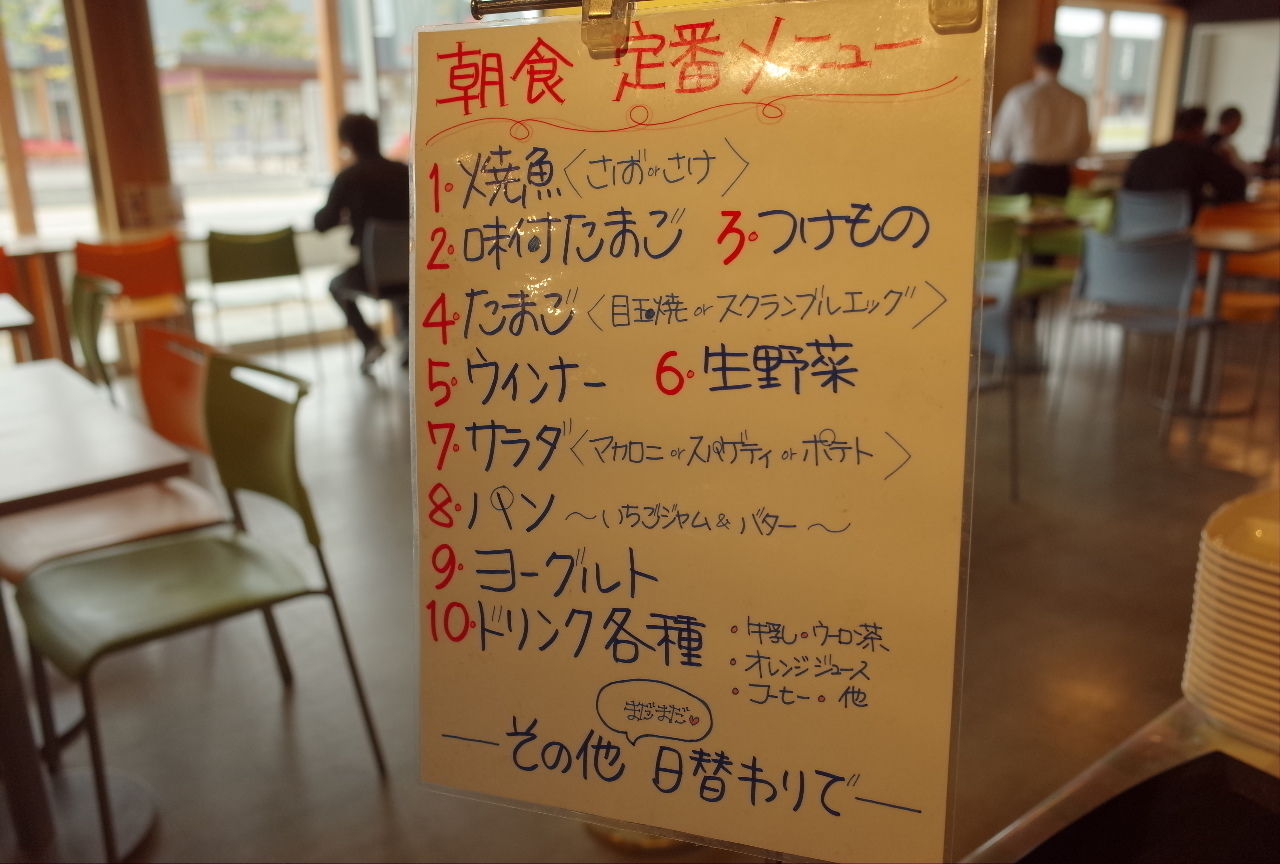 朝食 定番メニュー
1. 焼魚〈さば or さけ〉
2. 味付たまご 3. つけもの
4. たまご〈目玉焼 or スクランブルエッグ〉
5. ウィンナー 6. 生野菜
7. サラダ〈マカロニ or スパゲティ or ポテト〉
8. パン ～いちごジャム & バター～
9. ヨーグルト
10. ドリンク各種 ・牛乳・ウーロン茶
・オレンジジュース
・コーヒー・他
まだまだ♥
—その他 日替わりで—